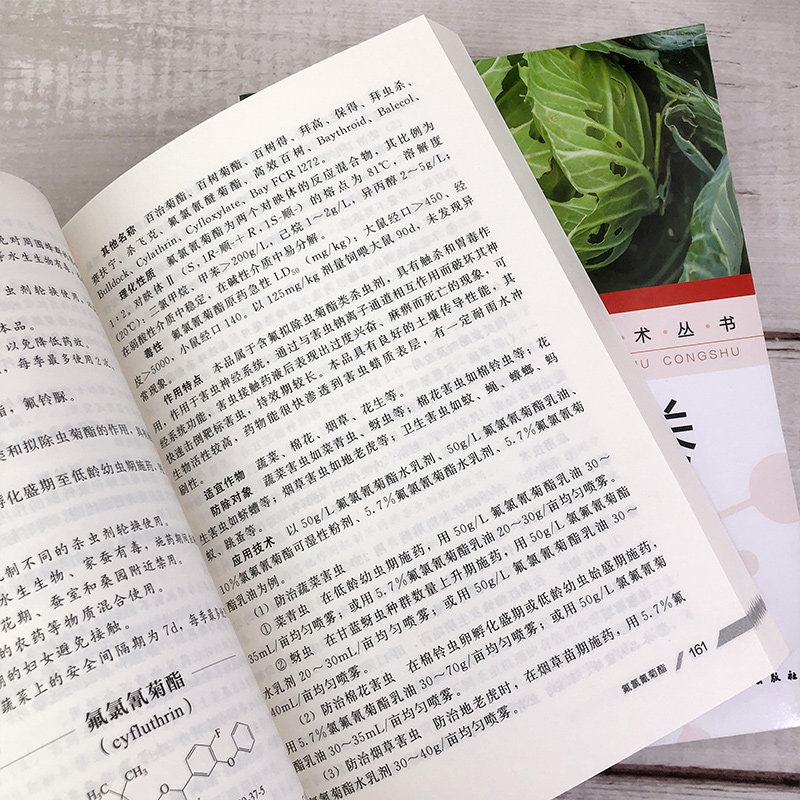 无对周围蜂群
水生生物有毒
虫剂轮换使用。
本品。
以免降低药效。
每季最多使用2次
酯,氟铃脲。
类和拟除虫菊酯的作用,具
孵化盛期至低龄幼虫期施药,
机制不同的杀虫剂轮换使用。
水生生物、家蚕有毒,施药期间
花期、蚕室和桑园附近禁用。
的农药等物质混合使用。
期的妇女避免接触。
蔬菜上的安全间隔期为7d,每季最多
氟氯氰菊酯
(cyfluthrin)
H₃C
CH₃
F
其他名称 百治菊酯、百树菊酯、百树得、拜高、保得、拜虫杀、
赛扶宁、杀飞克、氟氯氰醚菊酯、高效百树、Baythroid、Balecol、
Bulldock、Cylathrin、Cyfloxylate、Bay FCR 1272。
理化性质 氟氯氰菊酯为两个对映体的反应混合物,其比例为
1:2。对映体Ⅱ(S,1R-顺+R,1S-顺)的熔点为81℃,溶解度
(20℃):二氯甲烷、甲苯>200g/L,己烷1~2g/L,异丙醇2~5g/L;
在弱酸性介质中稳定,在碱性介质中易分解。
毒性 氟氯氰菊酯原药急性LD₅₀(mg/kg):大鼠经口>450、经
皮>5000,小鼠经口140。以125mg/kg剂量饲喂大鼠90d,未发现异
常现象。
作用特点 本品属于含氟拟除虫菊酯类杀虫剂,具有触杀和胃毒作
用,作用于害虫神经系统,通过与害虫钠离子通道相互作用而破坏其神
经系统功能,害虫接触药液后表现出过度兴奋、麻痹而死亡的现象,可
快速击倒靶标害虫,持效期较长。本品具有良好的土壤传导性能,其
生物活性较高,药物能很快渗透到害虫蜡质表层,有一定耐雨水冲
刷性。
适宜作物 蔬菜、棉花、烟草、花生等。
防除对象 蔬菜害虫如菜青虫、蚜虫等;棉花害虫如棉铃虫等;花
生害虫如蛴螬等;烟草害虫如地老虎等;卫生害虫如蚊、蝇、蟑螂、蚂
蚁、跳蚤等。
应用技术 以50g/L氟氯氰菊酯水乳剂、50g/L氟氯氰菊酯乳油、
10%氟氯氰菊酯可湿性粉剂、5.7%氟氯氰菊酯水乳剂、5.7%氟氯氰菊
酯乳油为例。
(1)防治蔬菜害虫
①菜青虫 在低龄幼虫期施药,用50g/L氟氯氰菊酯乳油30~
35mL/亩均匀喷雾;或用5.7%氟氯氰菊酯乳油20~30g/亩均匀喷雾。
②蚜虫 在甘蓝蚜虫种群数量上升期施药,用50g/L氟氯氰菊酯
水乳剂20~30mL/亩均匀喷雾;或用50g/L氟氯氰菊酯乳油30~
40mL/亩均匀喷雾。
(2)防治棉花害虫 在棉铃虫卵孵化盛期或低龄幼虫始盛期施药,
用5.7%氟氯氰菊酯乳油30~70g/亩均匀喷雾;或用50g/L氟氯氰菊
酯乳油30~35mL/亩均匀喷雾。
(3)防治烟草害虫 防治地老虎时,在烟草苗期施药,用5.7%氟
氯氰菊酯水乳剂30~40g/亩均匀喷雾。
氟氯氰菊酯 161
术·丛·书
U CONGSHU
出版社